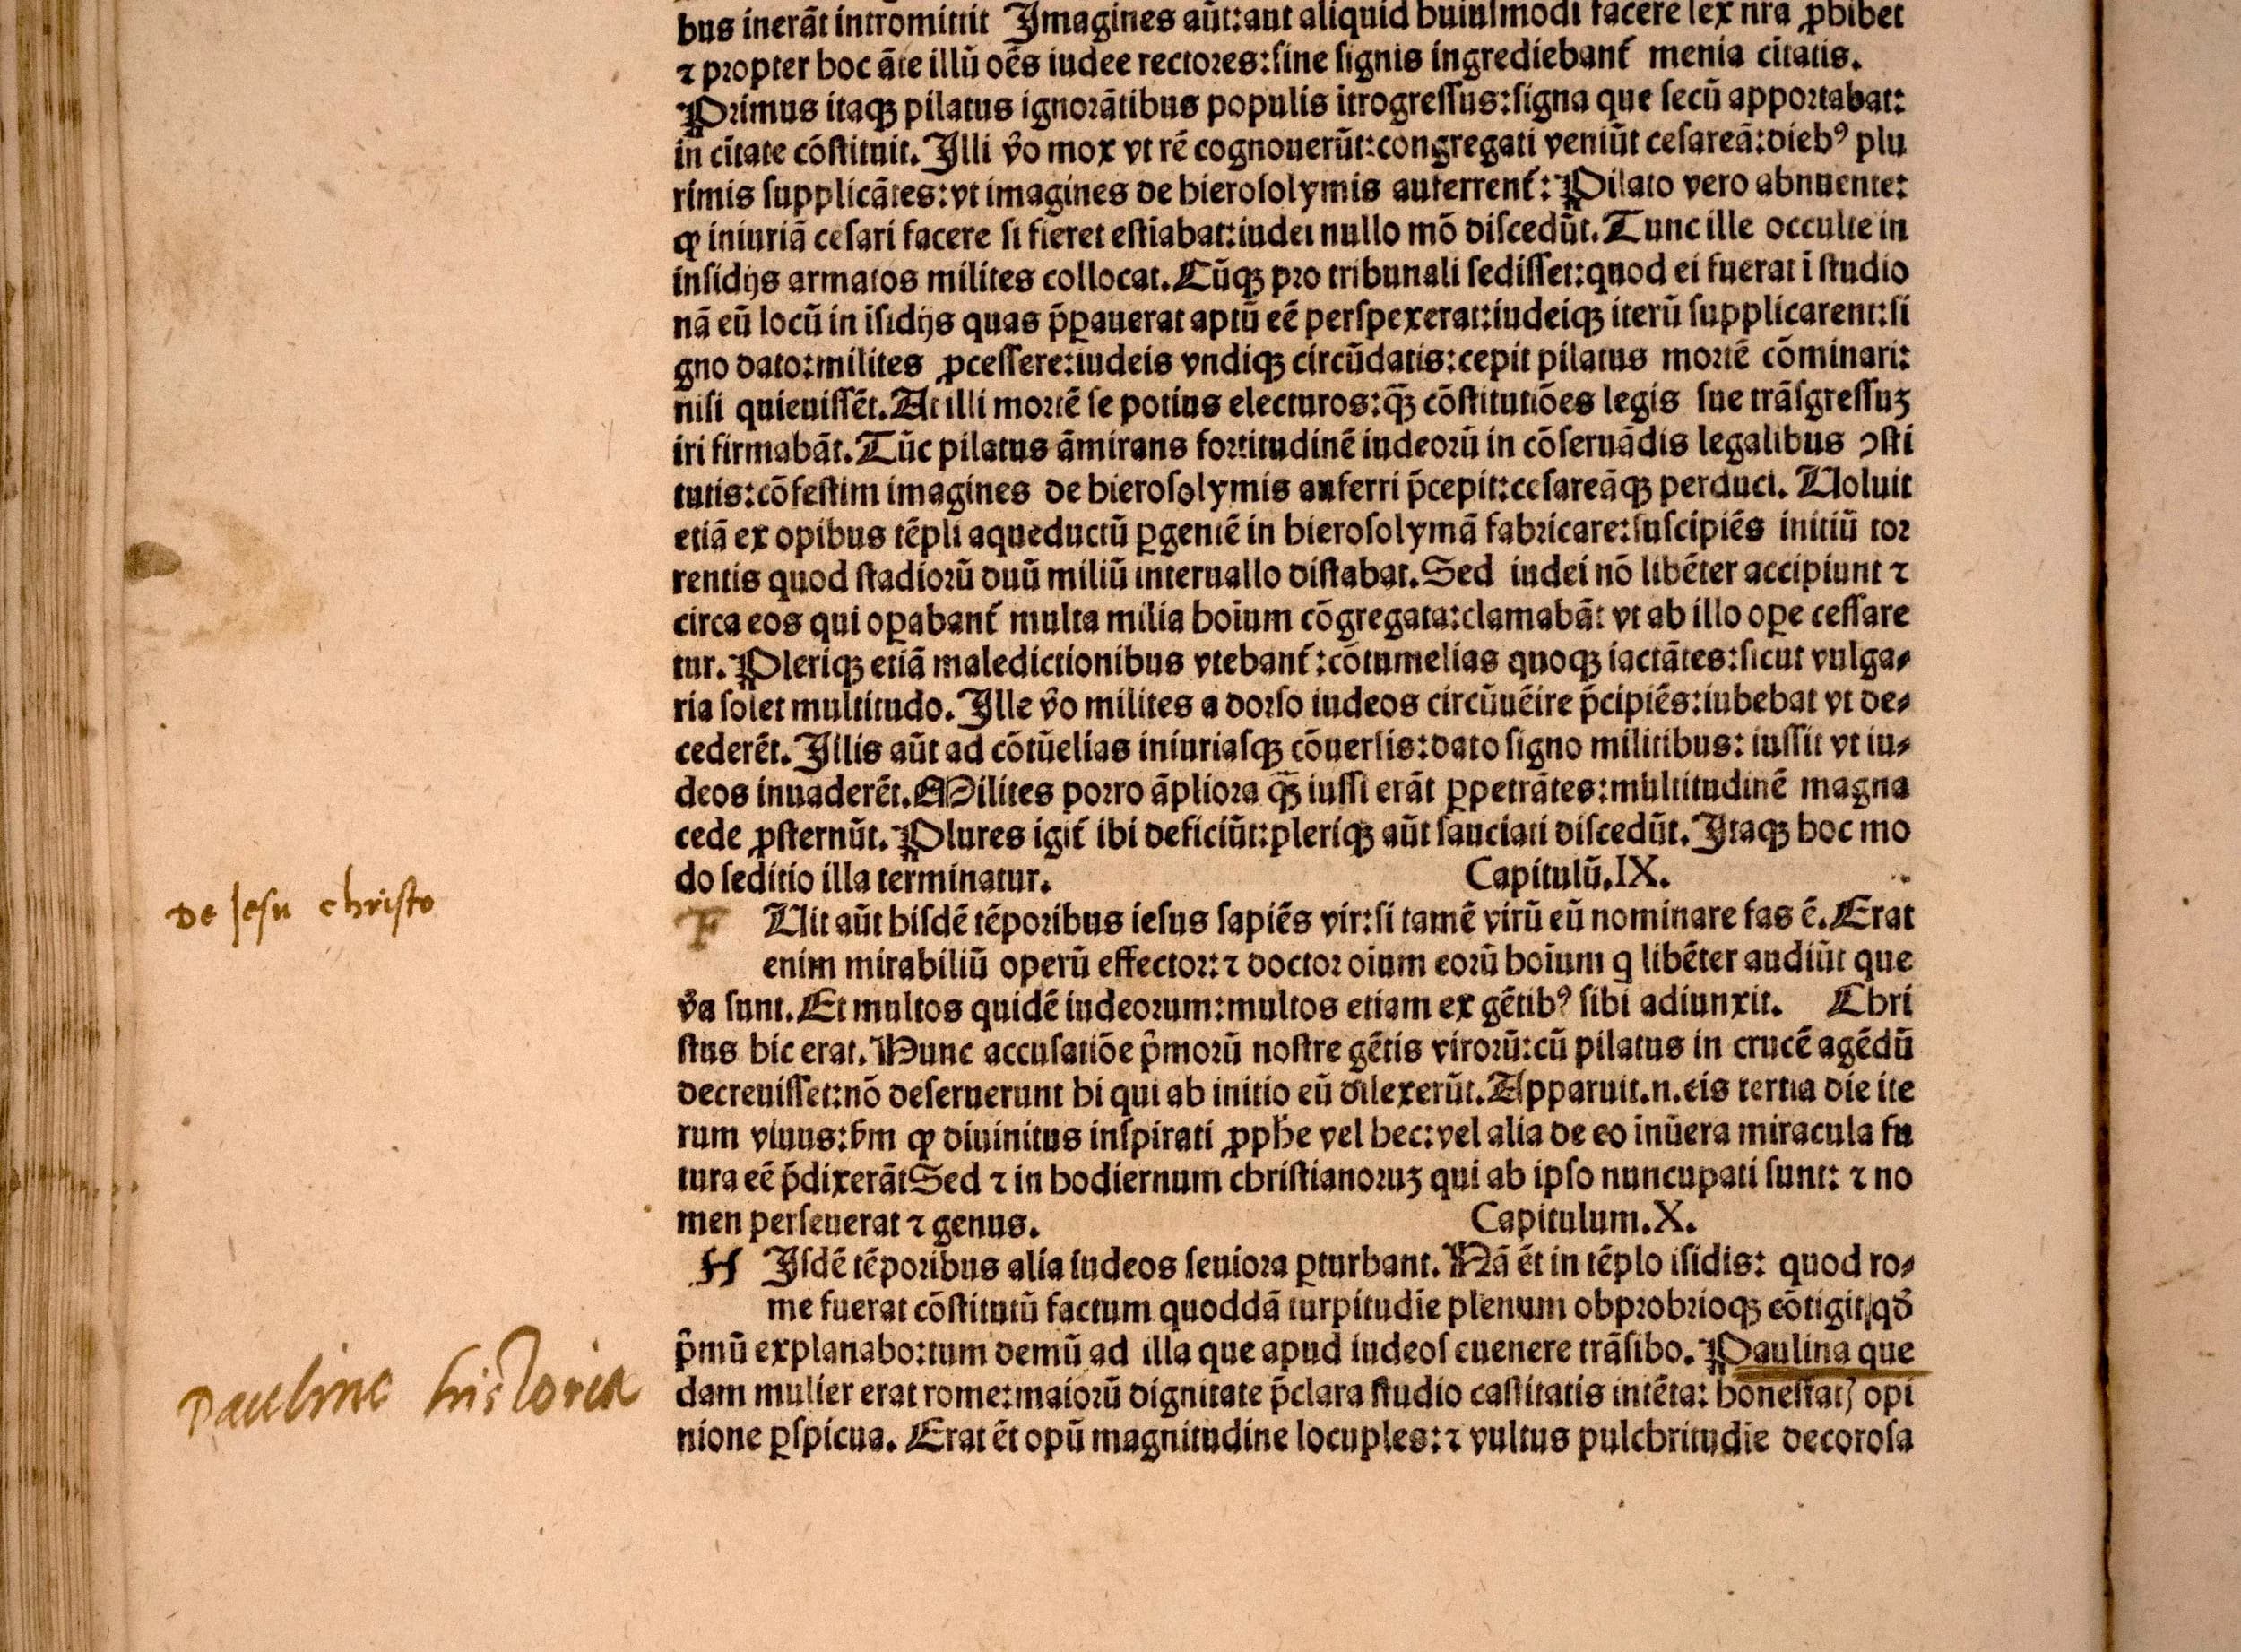 bus inerāt intromittit Imagines aūt:aut aliquid huiuſmodi facere lex nr̄a ꝓhibet
⁊ propter hoc āte illū oēs iudee rectores:ſine ſignis ingrediebant᷑ menia citatis.
Primus itaqꝫ pilatus ignorātibus populis itrogreſſus:ſigna que ſecū apportabat:
in citate cōſtituit. Illi v̄o mox vt rē cognouerūt:congregati veniūt ceſareā:diebꝰ plu
rimis ſupplicātes:vt imagines de hieroſolymis auferrent᷑: Pilato vero abnuente:
ꝙ iniuriā ceſari facere ſi fieret eſtiabat:iudei nullo mō diſcedūt. Tunc ille occulte in
inſidijs armatos milites collocat. Cūqꝫ pro tribunali ſediſſet:quod ei fuerat ī ſtudio
nā eū locū in iſidijs quas p̄ꝑauerat aptū eē perſpexerat:iudeiqꝫ iterū ſupplicarent:ſi
gno dato:milites ꝓceſſere:iudeis vndiqꝫ circūdatis:cepit pilatus mortē cōminari:
niſi quieuiſſēt. At illi mortē ſe potius electuros:qꝫ̄ cōſtitutiōes legis ſue trāſgreſſuꝫ
iri firmabāt. Tūc pilatus āmirans fortitudinē iudeorū in cōſeruādis legalibus ↄſti
tutis:cōfeſtim imagines de hieroſolymis auferri p̄cepit:ceſareāqꝫ perduci. Uoluit
etiā ex opibus tēpli aqueductū ꝑgentē in hieroſolymā fabricare:ſuſcipiēs initiū tor
rentis quod ſtadiorū duū miliū interuallo diſtabat. Sed iudei nō libēter accipiunt ⁊
circa eos qui oꝑabant᷑ multa milia hoīum cōgregata:clamabāt vt ab illo oꝑe ceſſare
tur. Pleriqꝫ etiā maledictionibus vtebant᷑:cōtumelias quoqꝫ iactātes:ſicut vulga⸗
ria ſolet multitudo. Ille v̄o milites a dorſo iudeos circūuēire p̄cipiēs:iubebat vt de⸗
cederēt. Illis aūt ad cōtūelias iniuriaſqꝫ cōuerſis:dato ſigno militibus: iuſſit vt iu⸗
deos inuaderēt. Milites porro āpliora qꝫ̄ iuſſi erāt ꝑpetrātes:multitudinē magna
cede ꝓſternūt. Plures igit᷑ ibi deficiūt:pleriqꝫ aūt ſauciati diſcedūt. Itaqꝫ hoc mo
do ſeditio illa terminatur. Capitulū.IX.
De Jesu christo
F Uit aūt hiſdē tēporibus ieſus ſapiēs vir:ſi tamē virū eū nominare fas ē. Erat
enim mirabiliū operū effector:⁊ doctor oīum eorū hoīum q libēter audiūt que
v̄a ſunt. Et multos quidē iudeorum:multos etiam ex gētibꝰ ſibi adiunxit. Chri
ſtus hic erat. Hunc accuſatiōe p̄morū noſtre gētis virorū:cū pilatus in crucē agēdū
decreuiſſet:nō deſeruerunt hi qui ab initio eū dilexerūt. Apparuit.n.eis tertia die ite
rum viuus:ẜm ꝙ diuinitus inſpirati ꝓph̄e vel hec:vel alia de eo inūera miracula fu
tura eē p̄dixerātSed ⁊ in hodiernum chriſtianoruꝫ qui ab ipſo nuncupati ſunt: ⁊ no
men perſeuerat ⁊ genus. Capitulum.X.
H Iſdē tēporibus alia iudeos ſeuiora ꝑturbant. Nā ēt in tēplo iſidis: quod ro⸗
me fuerat cōſtitutū factum quoddā turpitudīe plenum obprobrioqꝫ cōtigit qd̄
p̄mū explanabo:tum demū ad illa que apud iudeoſ euenere trāſibo. Paulina que
Pauline historia
dam mulier erat rome:maiorū dignitate p̄clara ſtudio caſtitatis intēta: honeſtatꝭ opi
nione ꝑſpicua. Erat ēt opū magnitudine locuples:⁊ vultus pulchritudīe decoroſa